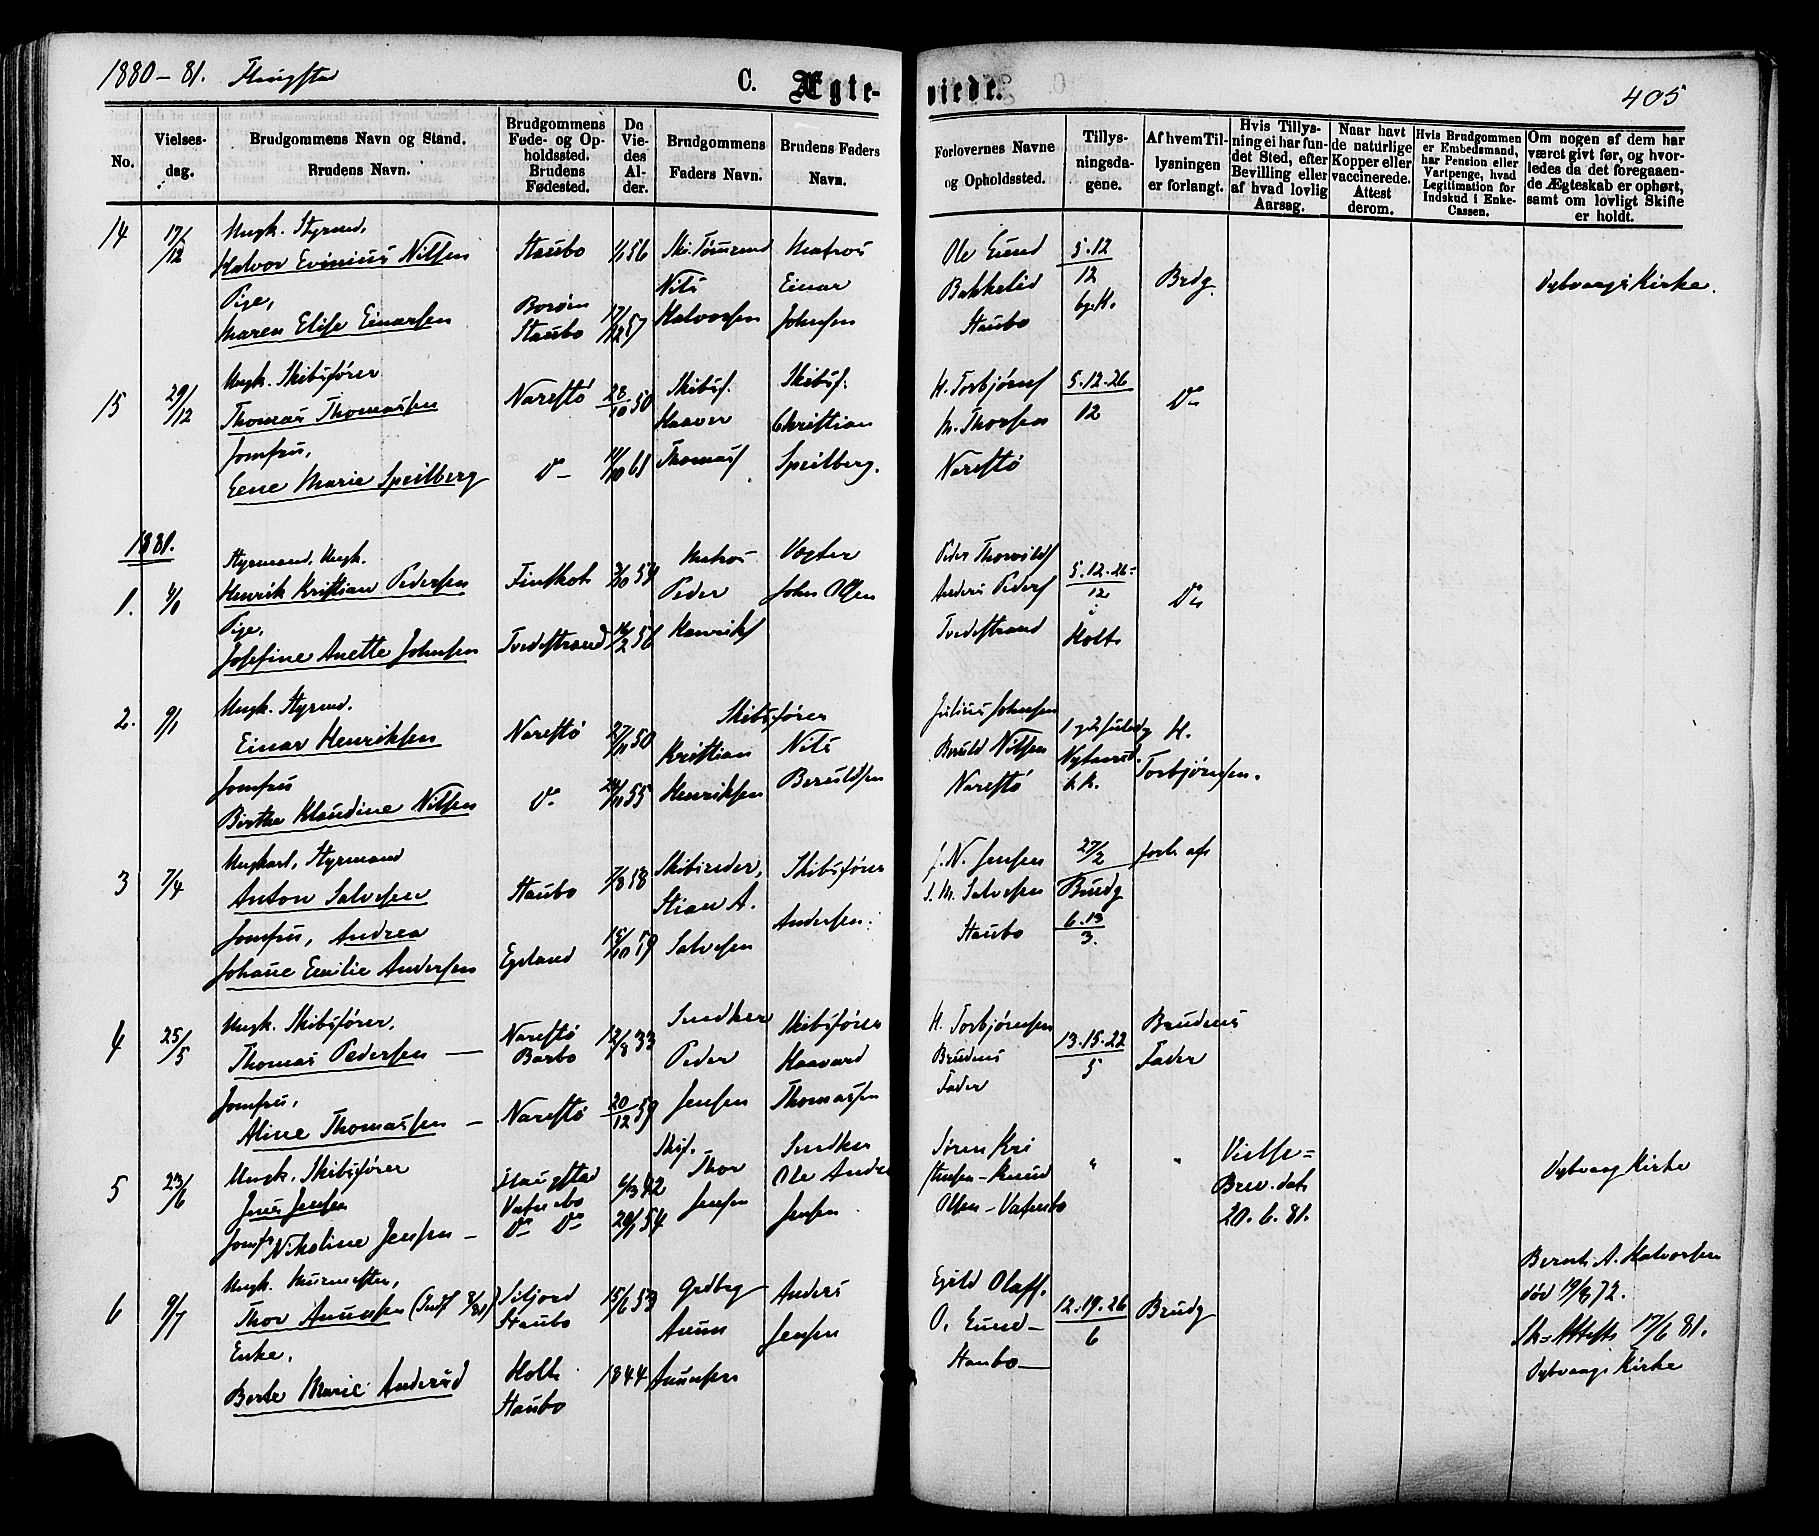 1880-81.
C. Ægteviede.
405
No.
Vielsesdag.
Brudgommens Navn og Stand.
Brudens Navn.
Brudgommens Føde- og Opholdssted. Brudens Fødested.
De Viedes Alder.
Brudgommens Faders Navn.
Brudens Faders Navn.
Forlovernes Navne og Opholdssted.
Tillysningsdagene.
Af hvem Tillysningen er forlangt.
Hvis Tillysning ei har fundet Sted, efter Bevilling eller af hvad lovlig Aarsag.
Naar havt de naturlige Kopper eller vaccinerede. Attest derom.
Hvis Brudgommen er Embedsmand, har Pension eller Vartpenge, hvad Legitimation for Indskud i Enke-Cassen.
Om nogen af dem har været givt før, og hvorledes da det foregaaende Ægteskab er ophørt, samt om lovligt Skifte er holdt.
14 17/12
Ungk. Styrmd,
Halvor Evinius Nilsen
Pige,
Maren Elise Einarsen
Staubo
Borøen
Staubo
56
17/12 57
Nils
Halvorsen
Matros
Einar
Johnsen
Ole
Bakkelid
Staubo
5.12
12
Brdg.
Dybvaags Kirke.
15 29/12
Ungk. Skibsfører
Thomas Thomassen
Jomfru,
Lene Marie Speilberg
Narestø
Do
28/10 50
11/10 61
Skibsf.
Haaver
Thomass
Skibsf.
Christian
Speilberg.
H. Torbjørns
M. Thorsen
Narestø
5.12.26
12
Do
1881.
1.
Styrmand, Ungk.
Henrik Kristian Pedersen
Pige,
Josefine Anette Johnsen
Tvedestrand
54
16/2 56
Matros
Peder
Henriks
Vogter
John Olsen
Peder Thorvilds
Anders Peders
Tvedestrand
5.12.26
12
i
Holt
Do
2. 9/1
Ungk. Styrmd.
Einar Henriksen
Jomfru
Birthe Klaudine Nilsen
Narestø
Do
27/11 50
55
Skibsfører
Kristian
Henriksen
Nils
Beruldsen
Julius Johnsen
Beruld Nilsen
Narestø
H.
Torbjørnsen.
3 7/4
Ungkarl, Styrmand
Anton Salvesen
Jomfru, Andrea
Johanne Emilie Andersen
Staubo
Egeland
7/8 58
15/10 59
Skibsreder,
Stian A.
Salvesen
Skibsfører
Andersen.
J. N. Jensen
S. M. Salvesen
Staubo
27/2
Brudg
6.13
3.
forl. af
4 25/5
Ungk. Skibsfører,
Thomas Pedersen
Jomfru,
Aline Thomassen
Narestø
Barbo
Narestø
12/8 33
20/12 59
Snedker
Peder
Jensen
Skibsfører
Haavard
Thomassen
H. Torbjørnsen
Brudens
Fader
13.15.22
5
Brudens
Fader
5 23/6
Ungk. Skibsfører
Jens Jensen
Jomf. Nikoline Jensen
Do Do
6/3 42
54
Skif.
Thor
Jensen
Snedker
Ole Andr.
Jensen
Søren Kri
stensen - Knud
Olsen - Vatnebo
"
"
Vielse=
Brev. dat.
20.6.81.
Dybvaag Kirke
6 9/7
Ungk. Murmester,
Thor Anunsen
Enke,
Berte Marie
Siljord
Staubo
Holt
Staubo
15/6 53
1844
Grdbrg
Anun
Anunsen
Anders
Jensen
Egild Olaff.
Staubo
12.19.26
6
Brudg
Bernt A. Halvorsen
død 19/8 72.
Sk= Attest 17/6 81.
Dybvaags Kirke